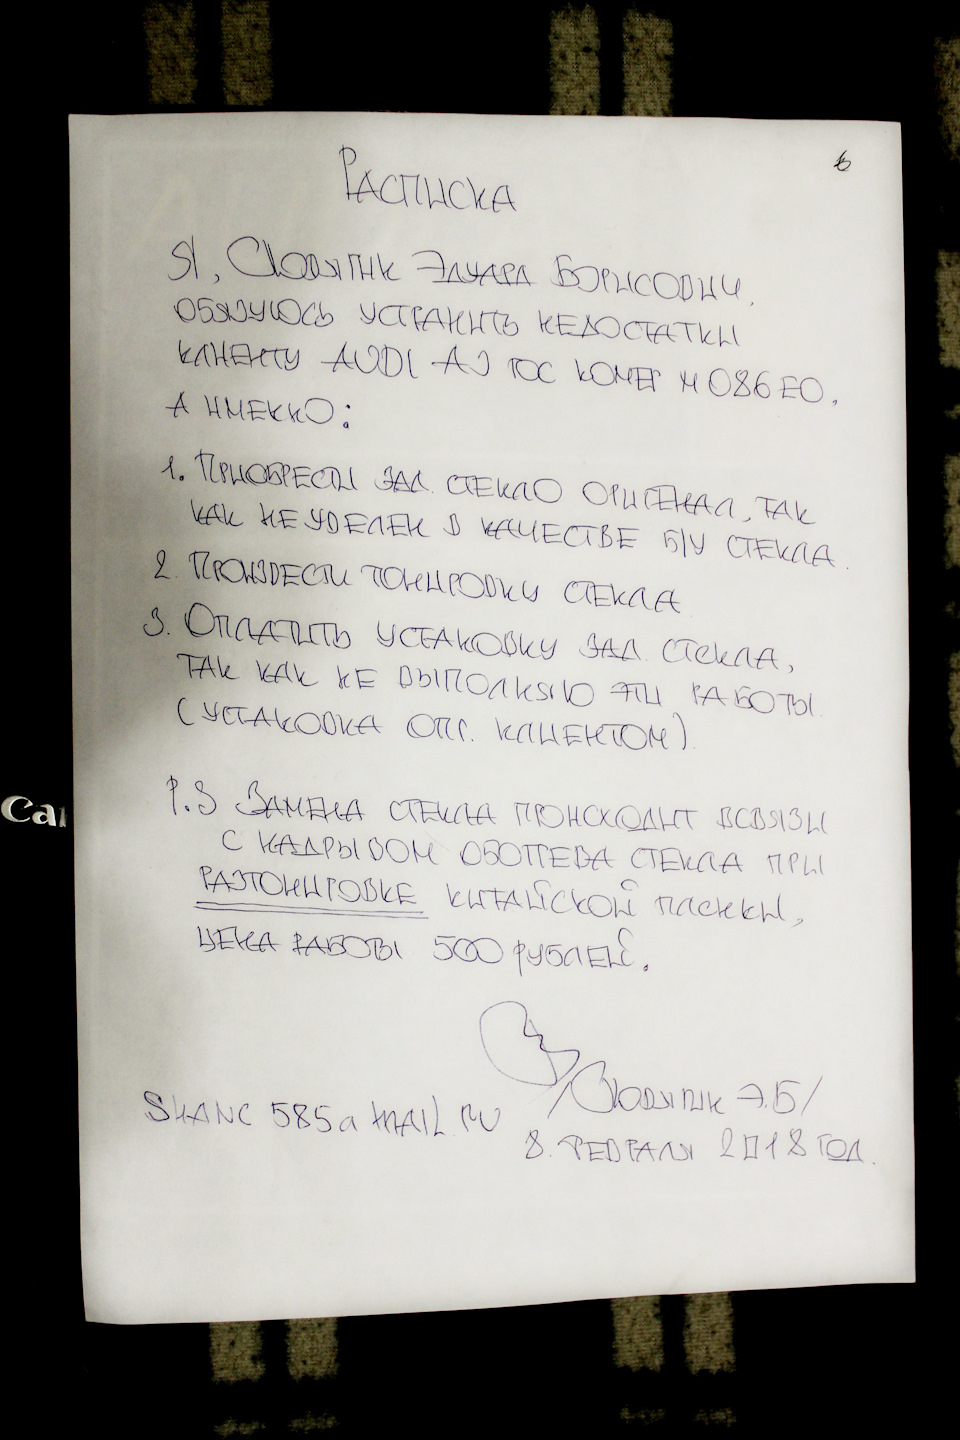 Расписка
Я, Словяпик Эдуард Борисович,
обязуюсь устранить недостатки
клиенту AUDI A3 гос номер м 086 ео,
а именно:
1. Приобрести зад. стекло оригенал, так
как не уделен в качестве б/у стекла.
2. Произвести тонировку стекла
3. Оплатить устаковку зад. стекла,
так как не выполняю эти работы
(устаковка опр. клиентом).
P.S Замена стекла происходит всвязи
с надрывом обогрева стекла при
разтонировке китайской пленки,
цена работы 500 рублей.
/Словяпик Э.Б/
SHANC 585a mail.ru
8. февраля 2018 год.
Can